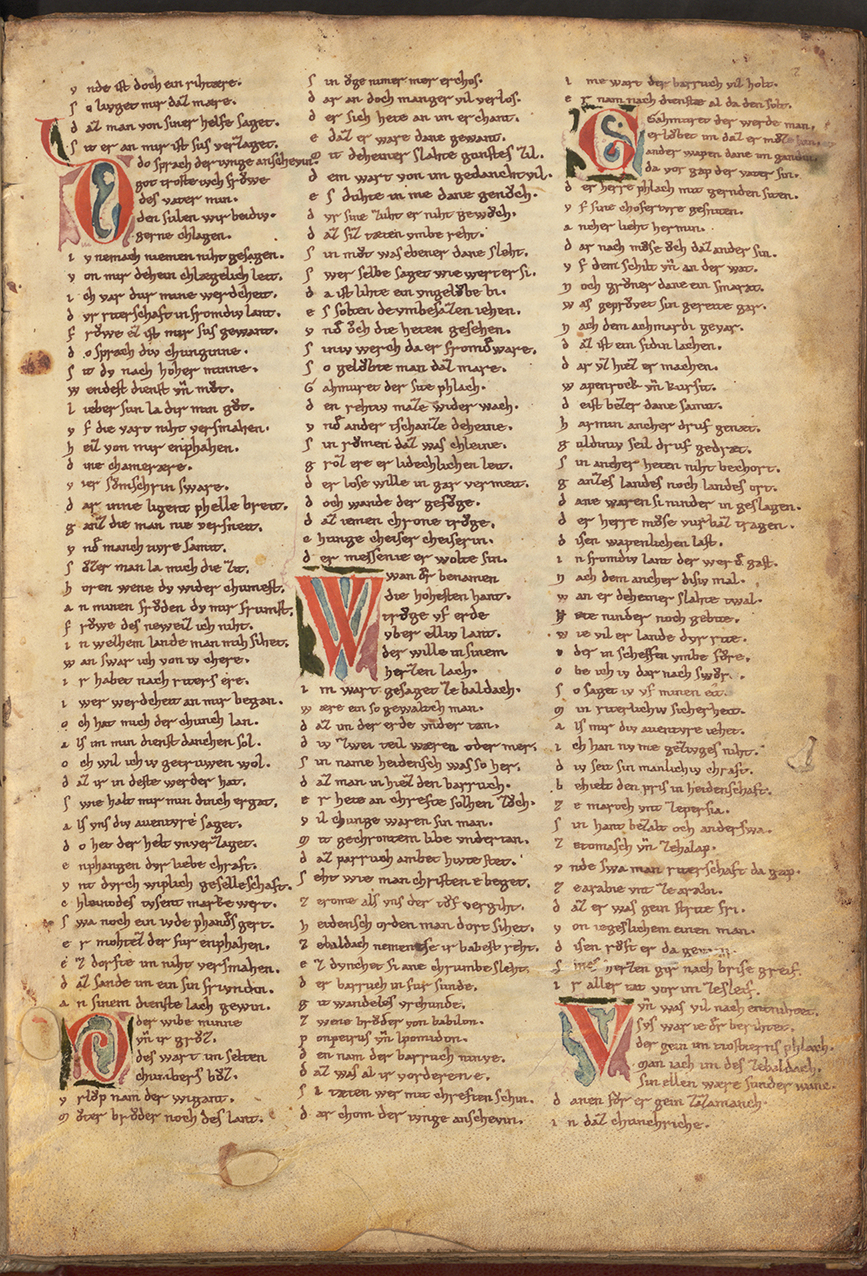 v nde ist doch ein rihtære.
s o luget mir daz mære.
d az man von siner helfe saget.
s it er an mir ist sus verzaget.
do sprach der ivnge anschevin.
got troste iwch frǒwe
des vater min.
den sulen wir beidiv
gerne chlagen.
i v nemach niemen niht gesagen.
v on mir dehein chlægelich leit.
i ch var dur mine werdecheit.
d vr riterschaft in fromdiv lant.
f rǒwe ez ist mir sus gewant.
d o sprach div chuneginne.
s it dv nach hoher minne.
w endest dienst vñ mǒt.
l ieber sun la dir min gǒt.
v f die vart niht versmahen.
h eiz von mir enphahen.
d ine chamerære.
v ier sǒmschrin sware.
d ar inne ligent phelle breit.
g anz die man nie versneit.
v nd manch tivre samit.
s ǒzer man la mich die zit.
h oren wene dv wider chumest.
a n minen frǒden dv mir frumst.
f rǒwe des neweiz ich niht.
i n welhem lande man mih sihet.
w an swar ich von iv chere.
i r habet nach riters ere.
i wer werdecheit an mir began.
o ch hat mich der chunch lan.
a ls im min dienst danchen sol.
o ch wil ich iv getruwen wol.
d az ir in deste werder hat.
s wie halt mir min dinch ergat.
a ls vns div aventvre saget.
d o het der helt vnverzaget.
e nphangen dvr liebe chraft.
v nt dvrch wiplich geselleschaft.
c hleinodes tvsent marke wert.
s wa noch ein ivde phandes gert.
e r mohtez der fur enphahen.
e z dorfte im niht versmahen.
d az sande im ein sin frivndin.
a n sinem dienste lach gewin.
der wibe minne
vñ ir grǒz.
des wart im selten
chumbers bǒz.
v rlǒp nam der wigant.
mǒter brǒder noch des lant.
s in ǒge nimer mer erchos.
d ar an doch manger vil verlos.
d er sich hete an im erchant.
e daz er ware dane gewant.
m it deheiner slahte gunstes zil.
d em wart von im gedancht vil.
e s duhte in me dane genǒch.
d vr sine zuht er niht gewǒch.
d az siz tæten vmbe reht.
s in mǒt was ebener dane sleht.
s wer selbe saget wie wert er si.
d a ist lihte ein vngelǒbe bi.
e s solten de vmbesazen iehen.
v nd ǒch die heten gesehen.
s iniv werch da er fromdware.
s o gelǒbte man daz mære.
G ahmuret der site phlach.
d en rehtiv maze wider wach.
v nd ander tschanze deheine.
s in rǒmen daz was chleine.
g roz ere er lidechlichen leit.
d er lose wille in gar vermeit.
d och wande der gefǒge.
d az iemen chrone trǒge.
c hunge cheiser cheiserin.
d er messenie er wolte sin.
wan ǒr benamen
die hohesten hant.
trǒge vf erde
vber elliv lant.
der wille in sinem
herzen lach.
i m wart gesaget ze baldach.
w ære ein so gewaltch man.
d az im der erde vnder tan.
d iv zwei teil wæren oder mer.
s in name heidensch was so her.
d az man in hiez den barruch.
e r hete an chrefte solhen zǒch.
v il chunge waren sin man.
m it gechrontem libe vndertan.
d az parruch ambet hivte stet.
s eht wie man christen e beget.
z e rome als vns der tǒf vergiht.
h eidensch orden man dort sihet.
z e baldach nement se ir babest reht.
e z dvnchet si ane chrumbe sleht.
d er barruch in fur sunde.
g it wandeles vrchunde.
z wene brǒder von babilon.
p onpeivs vñ ipomidon.
d en nam der barruch ninive.
d az was al ir vorderen e.
s i tæten wer mit chreften schin.
d ar chom der ivnge anschevin.
i me wart der barruch vil holt.
e r nam nach dienste al da den solt.
Gahmuret der werde man.
erlǒbet im daz er mǒze
ander wapen dane im gandin.
da vor gap der vater sin.
d er herre phlach mit gernden siten.
v f sine chofertvre gesniten.
a ncher lieht hermin.
d ar nach mǒse ǒch daz ander sin.
v f dem schilt vñ an der wat.
n och grǒner dane ein smarat.
w as geprǒvet sin gereite gar.
n ach dem achmardi gevar.
d az ist ein sidin lachen.
d ar vz hiez er machen.
w apenroch vñ kursit.
d eist bezer dane samit.
h ermin ancher druf genæt.
g uldiniv seil druf gedræt.
s in ancher heten niht bechort.
g anzes landes noch landes ort.
d ane waren si ninder in geslagen.
d er herre mǒse vurbaz tragen.
d isen wapenlichen last.
i n fromdiv lant der werd gast.
n ach dem ancher disiv mal.
w an er deheiner slahte twal.
h ete ninder noch gebite.
w ie vil er lande dvr rite.
o der in scheffen vmbe fǒre.
o be ich iv dar nach swǒr.
s o saget iv vf minen eit.
m in riterlichiv sicherheit.
a ls mir div aventvre iehet.
i ch han nv me gezivges niht.
d iv seit sin manlichiv chraft.
b ehielt den pris in heidenschaft.
z e march vnt ze persia.
s in hant bezalt och anderswa.
z e tomasch vñ ze halap.
v nde swa man riterschaft da gap.
z e arabie vnt ze arabi.
d az er was gein strite fri.
v on iegeslichem einen man.
d isen rǒft er da
s ines herzen gir nach brise greif.
i r aller tat vor im zesleif.
vñ was vil nach
sus war ie dr berihtet.
der gein im tiostierens phlach.
man iach im des ze baldach.
sin ellen ware sunder
d anen fǒr er gein zazamanch.
i n daz chunchriche.